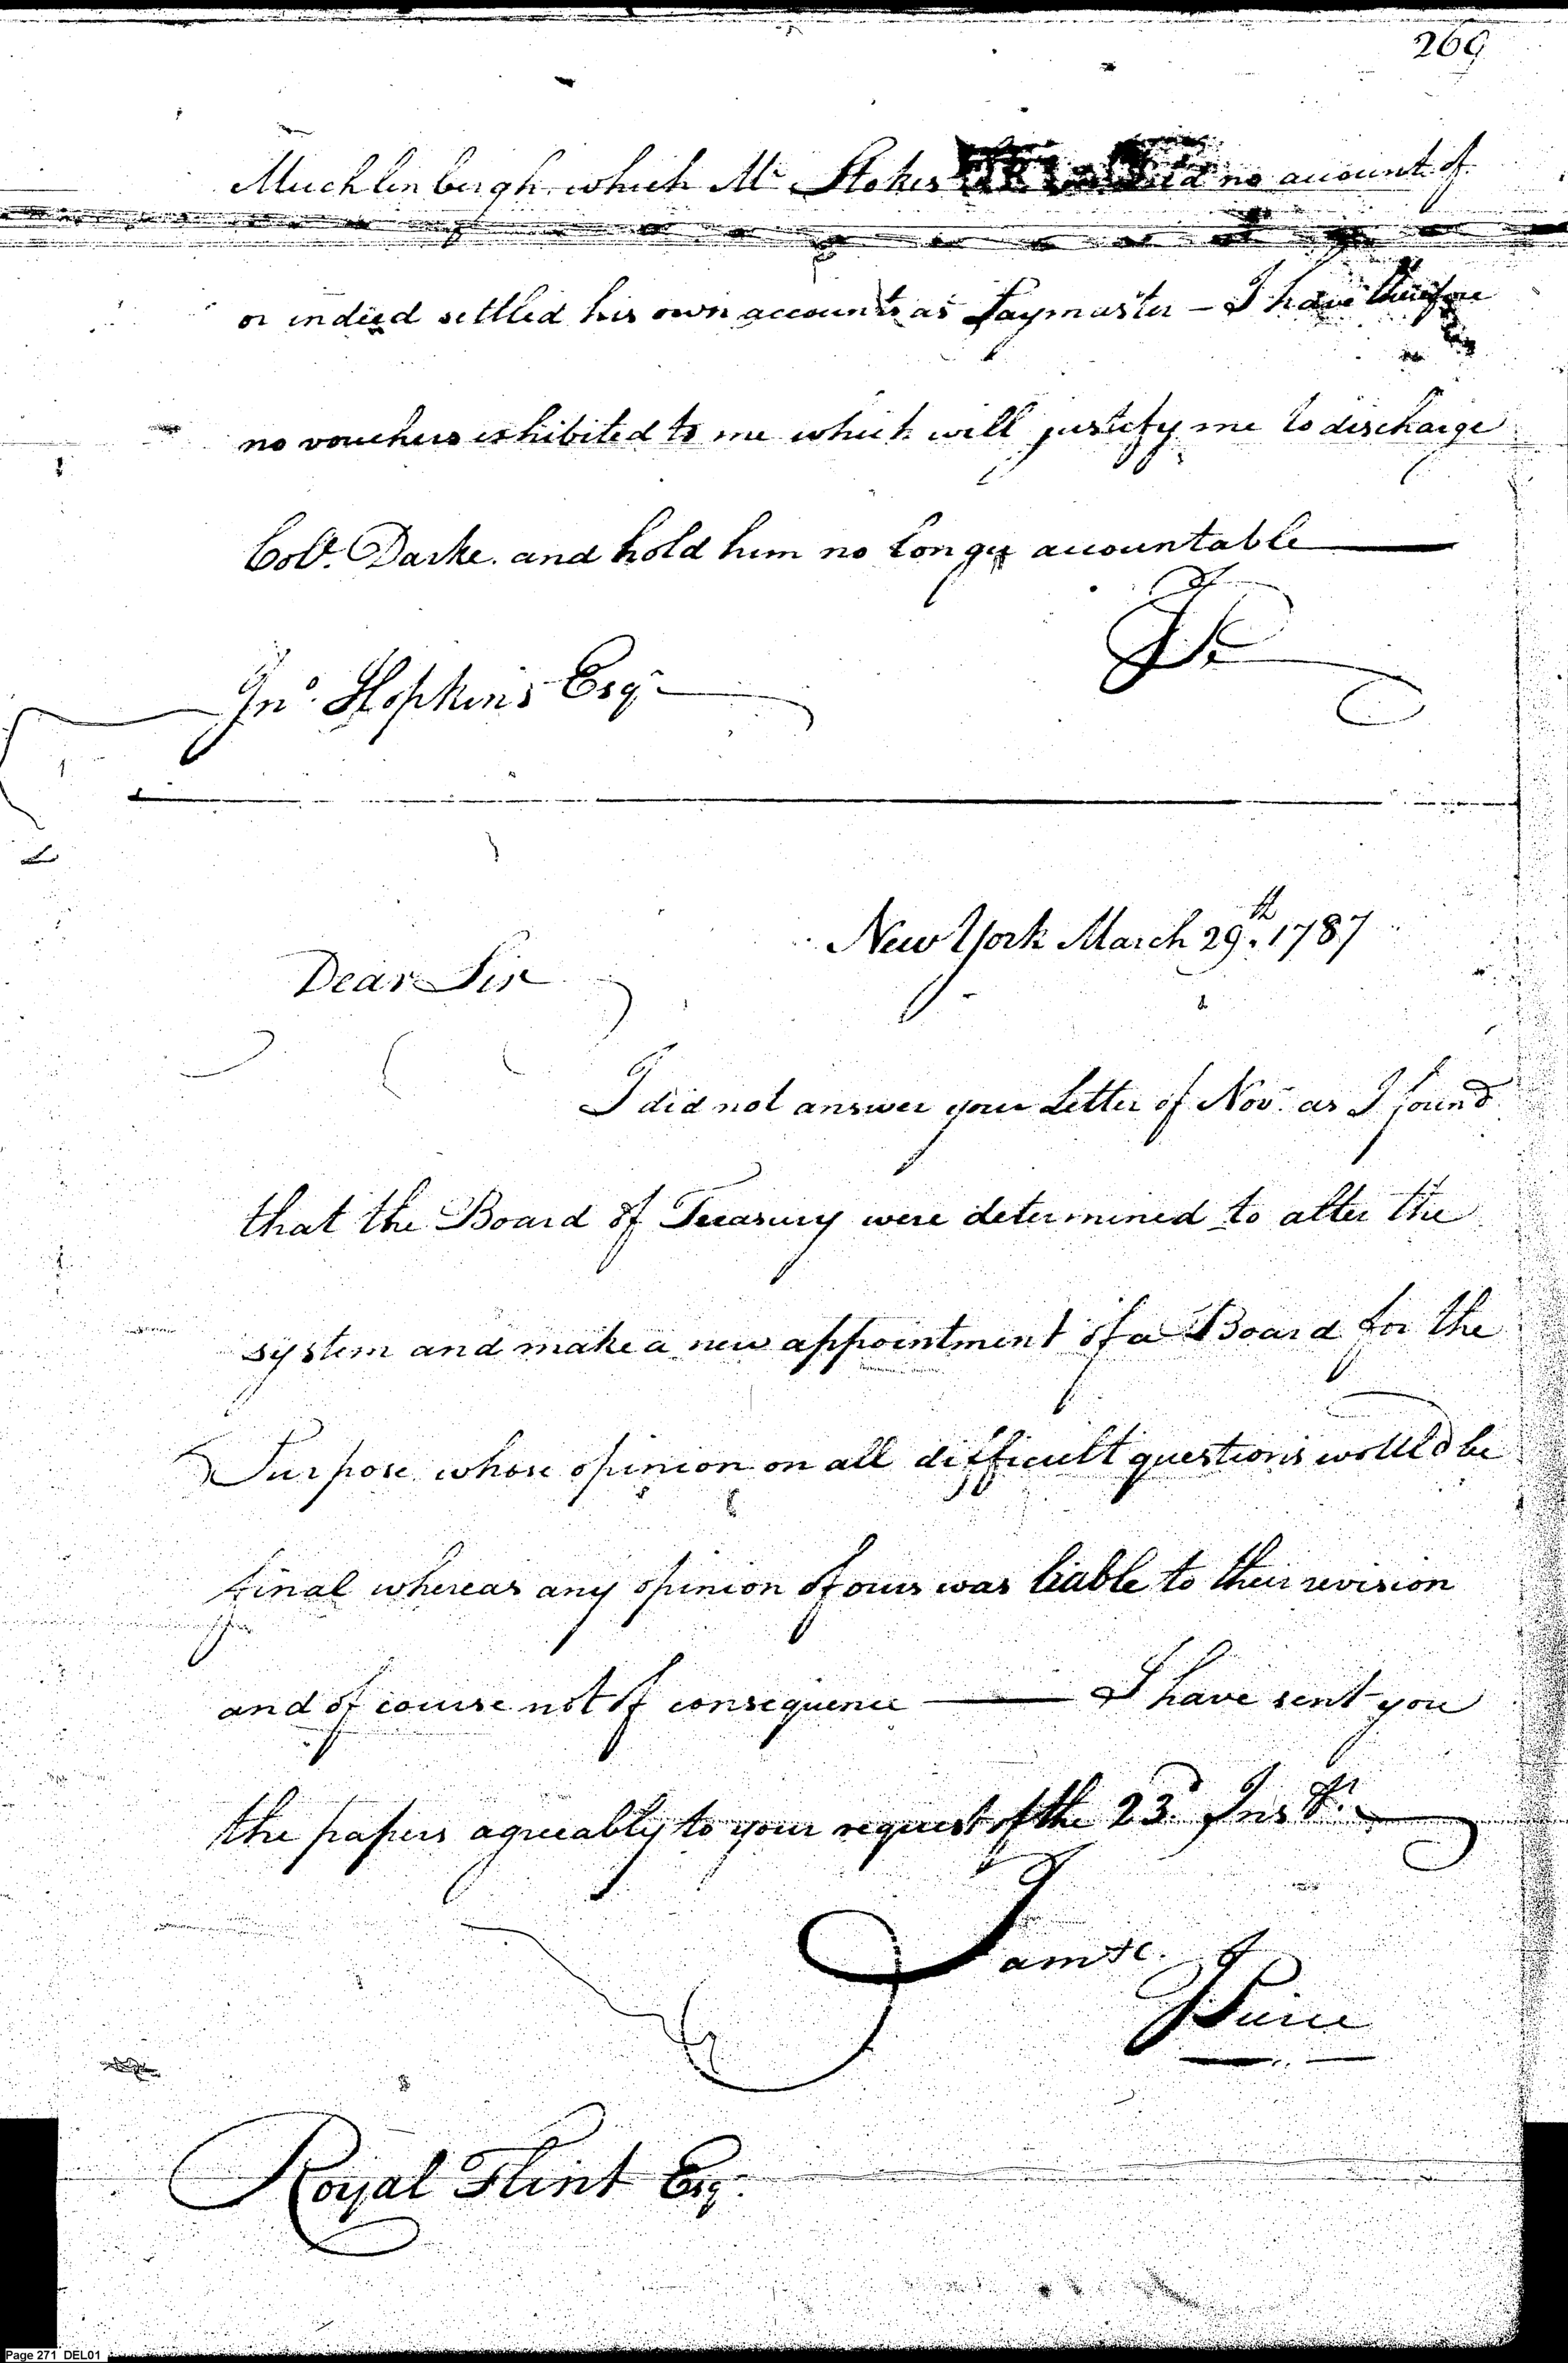 269
Muchlenbergh which Mr Stokes no account of
or indeed settled his own accounts as Paymaster - I have therefore
no vouchers exhibited to me which will justify me to discharge
Colo. Darke and hold him no longer accountable
Jno. Hopkins Esqr
New York March 29.th 1787
Dear Sir
I did not answer your Letter of Novr. as I found
that the Board of Treasury were determined to alter the
system and make a new appointment of a Board for the
Purpose whose opinion on all difficult questions would be
final whereas any opinion of ours was liable to their revision
and of course not of consequence — I have sent you
the papers agreeably to your request of the 23d. Inst.
I am &c.
JPierce
Royal Flint Esqr.
Page 271 DEL01